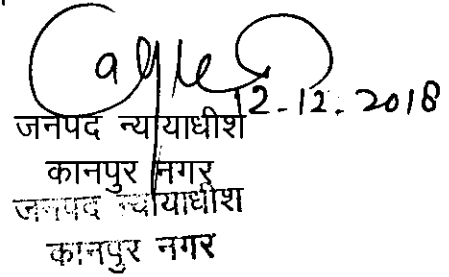 12-12-2018
जनपद न्यायाधीश
कानपुर नगर
जनपद न्यायाधीश
कानपुर नगर